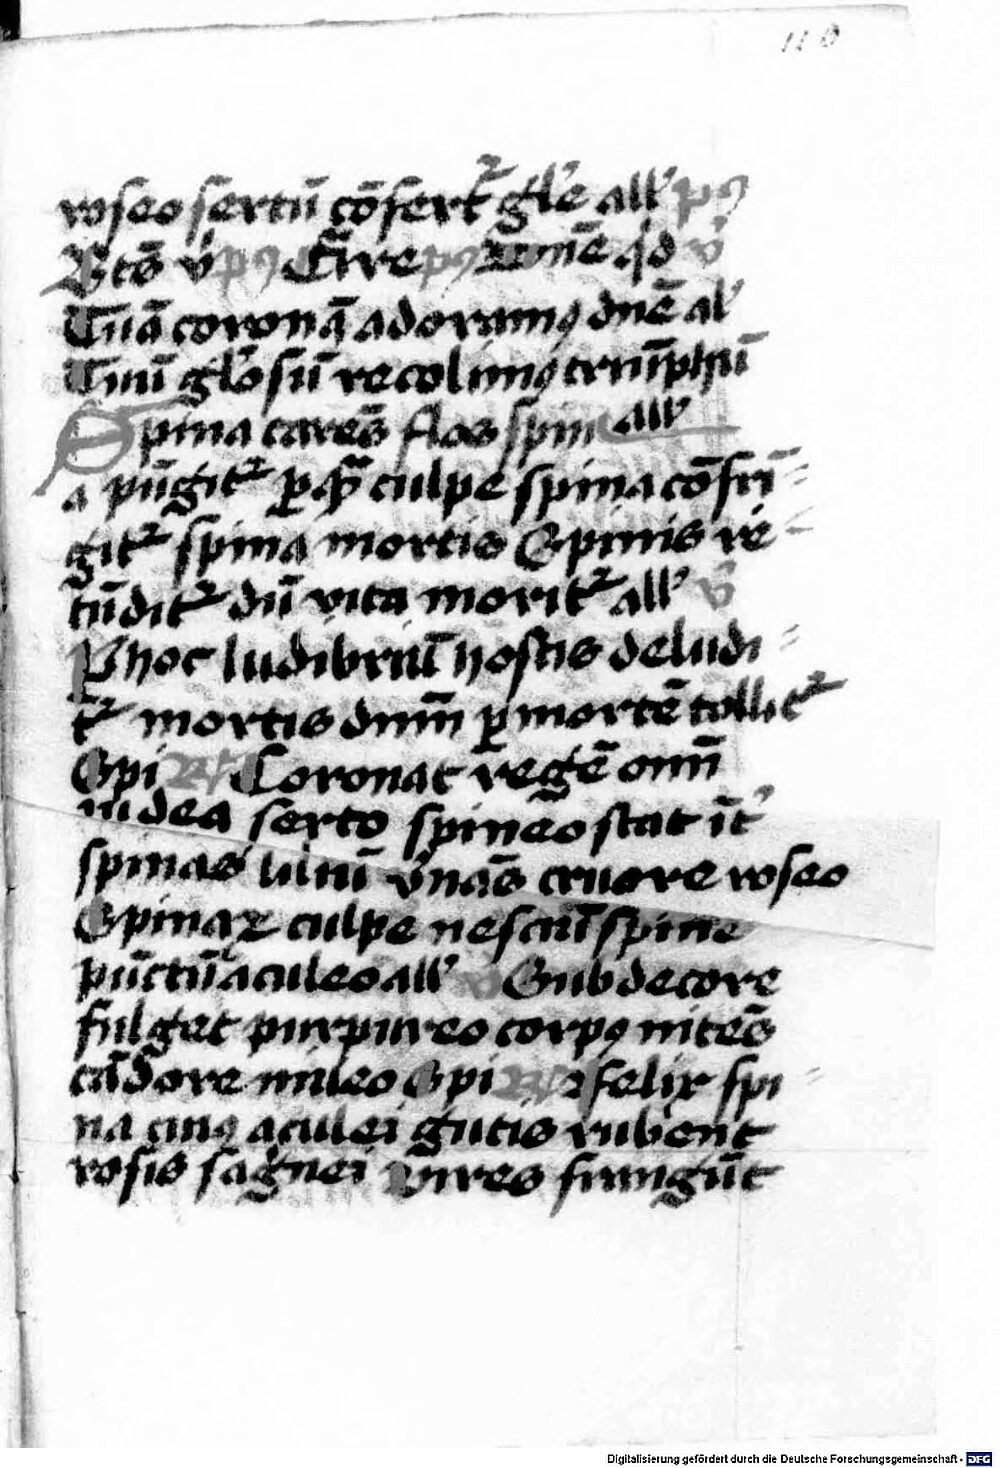 116
roseo sertū cōfert᷑ gl'e all' pꝰ
Btō v̓ pꝰ Cūre pꝰ Dn̄e qd v̓
Tuā coronā adoramꝰ dn̄e al'
Tuū gl'osū recolimꝰ triūphū
Spina carēs flos spin all'
a pūgit᷑ ꝑ quā culpe spina cōfrī
git᷑ spina mortis Spinis re
tūdit᷑ dū vita morit᷑ all' v̓
Phoc ludibriū hostis deludi
t᷑ mortis dn̄iū ꝑ mortē tollit᷑
Spi R Coronat regē om̄
iudea serto spineo stat īt'
spinas liliū v̓nās cruore roseo
Spinaꝝ culpe nesciū spine
pūctū aculeo all' v̓ Sub decore
fulget purpureo corpꝰ nitēs
cādore niueo Spi R O felix spi
na cuiꝰ aculei gutis rubent
rosis sāgnei vires frangūt
Digitalisierung gefördert durch die Deutsche Forschungsgemeinschaft - DFG